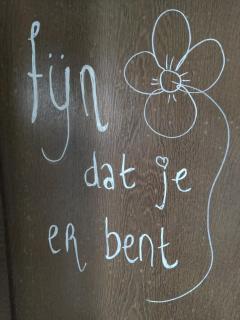 fijn
dat je
er bent